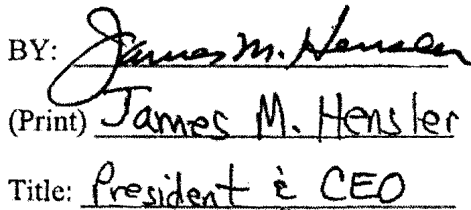 BY: James M. Hensler
(Print) James M. Hensler
Title: President & CEO